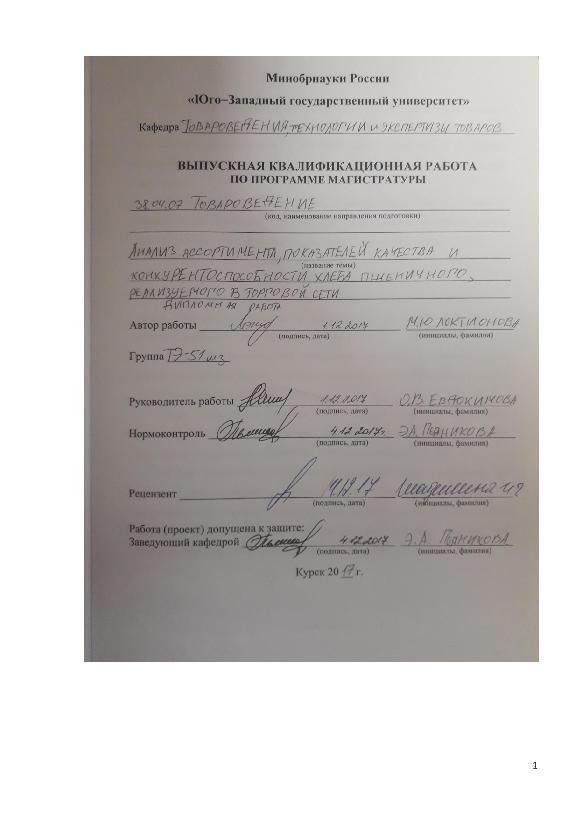 Минобрнауки России
«Юго–Западный государственный университет»
Кафедра Товароведения, технологии и экспертизы товаров
ВЫПУСКНАЯ КВАЛИФИКАЦИОННАЯ РАБОТА
ПО ПРОГРАММЕ МАГИСТРАТУРЫ
38.04.07 Товароведение
(код, наименование направления подготовки)
Анализ ассортимента, показателей качества и
(название темы)
конкурентоспособности хлеба пшеничного,
реализуемого в торговой сети
Дипломная работа
Автор работы 1.12.2017 М.Ю Локтионова
(подпись, дата) (инициалы, фамилия)
Группа ТЭ-51мз
Руководитель работы 1.12.2017 О.В. Евдокимова
(подпись, дата) (инициалы, фамилия)
Нормоконтроль 4.12.2017г. Э.А. Пьяникова
(подпись, дата) (инициалы, фамилия)
Рецензент
(подпись, дата) (инициалы, фамилия)
Работа (проект) допущена к защите:
Заведующий кафедрой 4.12.2017 Э.А. Пьяникова
(подпись, дата) (инициалы, фамилия)
Курск 2017 г.
1